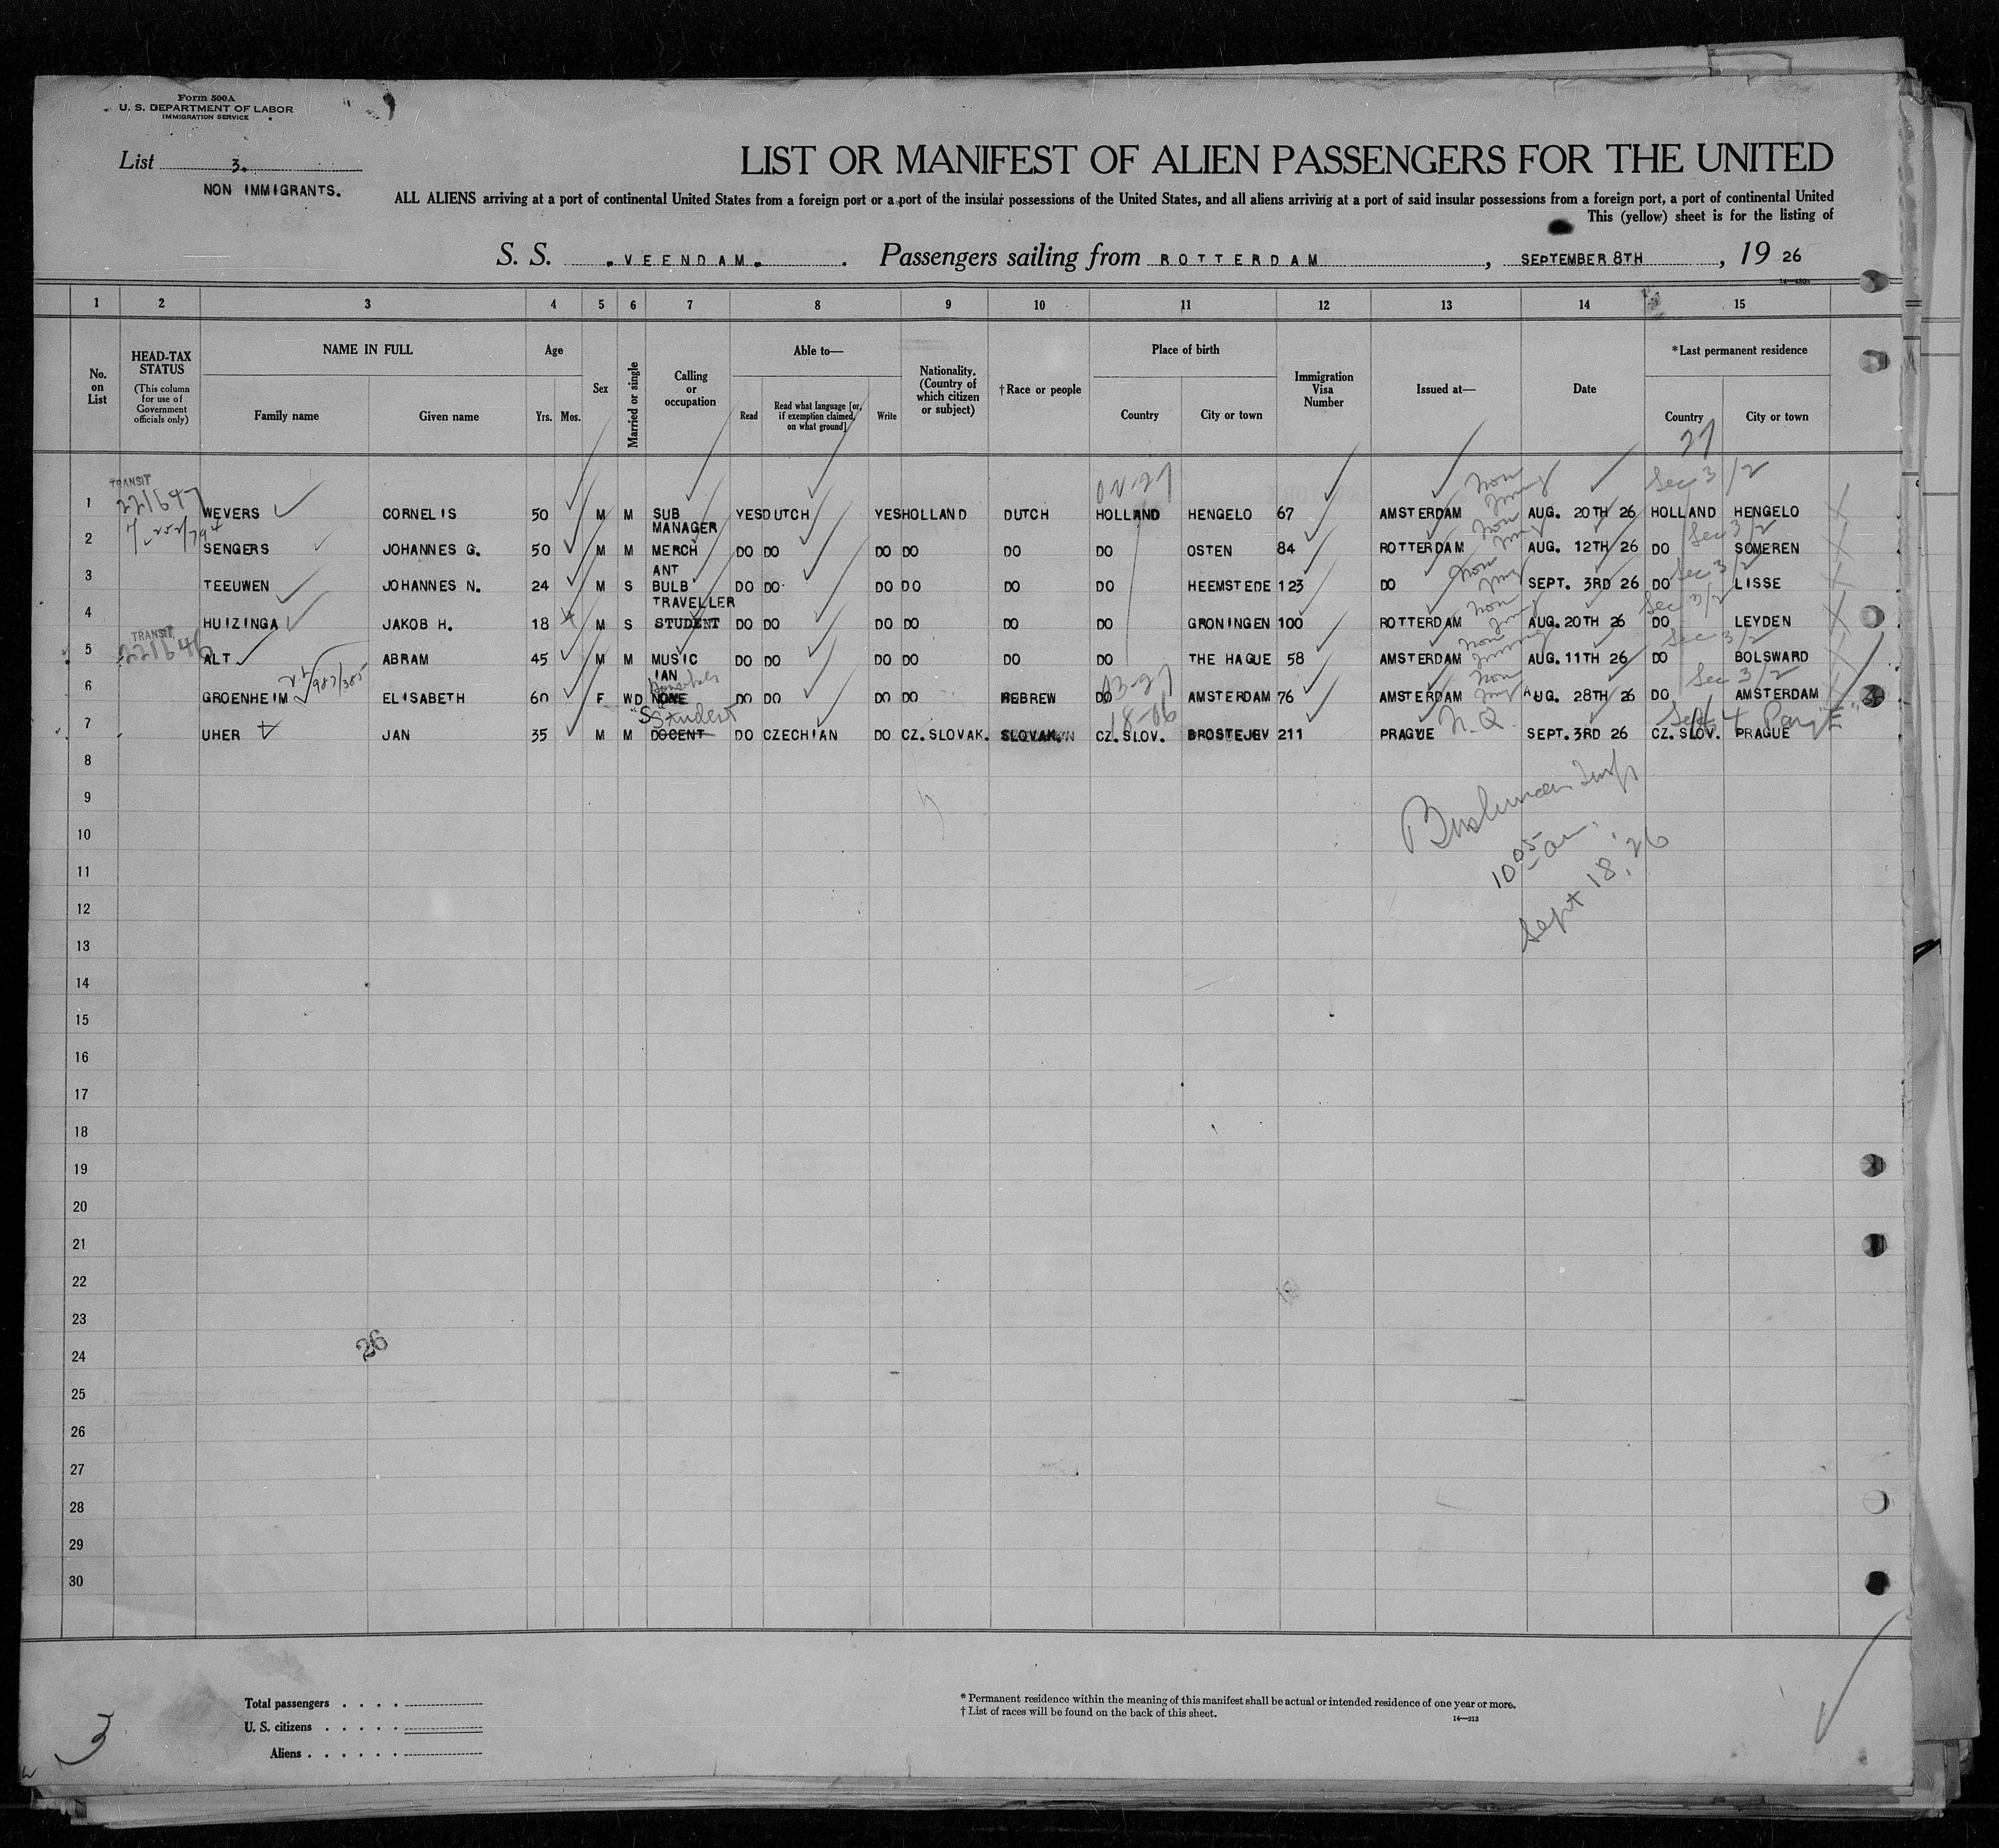 Form 500A
U. S. DEPARTMENT OF LABOR
IMMIGRATION SERVICE
List 3.
NON IMMIGRANTS.
LIST OR MANIFEST OF ALIEN PASSENGERS FOR THE UNITED
ALL ALIENS arriving at a port of continental United States from a foreign port or a port of the insular possessions of the United States, and all aliens arriving at a port of said insular possessions from a foreign port, a port of continental United
This (yellow) sheet is for the listing of
S. S. VEENDAM. Passengers sailing from ROTTERDAM, SEPTEMBER 8TH, 19 26
1 2 3 4 5 6 7 8 9 10 11 12 13 14 15
No. on List
HEAD-TAX STATUS (This column for use of Government officials only)
NAME IN FULL
Family name Given name
Age
Yrs. Mos.
Sex
Married or single
Calling or occupation
Able to—
Read Read what language [or, if exemption claimed, on what ground] Write
Nationality. (Country of which citizen or subject)
†Race or people
Place of birth
Country City or town
Immigration Visa Number
Issued at—
Date
*Last permanent residence
Country City or town
27
TRANSIT 221647 02-27 Non Immig Sec 3/2
1 WEVERS CORNELIS 50 M M SUB MANAGER YES DUTCH YES HOLLAND DUTCH HOLLAND HENGELO 67 AMSTERDAM AUG. 20TH 26 HOLLAND HENGELO
Non Immig Sec 3/2
2 SENGERS JOHANNES G. 50 M M MERCHANT DO DO DO DO DO DO OSTEN 84 ROTTERDAM AUG. 12TH 26 DO SOMEREN
Non Img Sec 3/2
3 TEEUWEN JOHANNES N. 24 M S BULB TRAVELLER DO DO DO DO DO DO HEEMSTEDE 123 DO SEPT. 3RD 26 DO LISSE
Non Immig Sec 3/2
4 HUIZINGA JAKOB H. 18 M S STUDENT DO DO DO DO DO DO GRONINGEN 100 ROTTERDAM AUG. 20TH 26 DO LEYDEN
TRANSIT 221646 Non Immig Sec 3/2
5 ALT ABRAM 45 M M MUSICIAN DO DO DO DO DO DO THE HAGUE 58 AMSTERDAM AUG. 11TH 26 DO BOLSWARD
13-27 Non Img Sec 3/2
6 GROENHEIM ELISABETH 60 F WD NONE DO DO DO DO HEBREW DO AMSTERDAM 76 AMSTERDAM AUG. 28TH 26 DO AMSTERDAM
Student 18-06 N.Q.
7 UHER JAN 35 M M DOCENT DO CZECHIAN DO CZ. SLOVAK. SLOVAK. CZ. SLOV. BROSTEJEV 211 PRAGUE SEPT. 3RD 26 CZ. SLOV. PRAGUE
8
9
10
11
12
13
14
15
16
17
18
19
20
21
22
23
24
25
26
27
28
29
30
10 05 am.
Sept 18, '26
26
Total passengers
U. S. citizens
Aliens
* Permanent residence within the meaning of this manifest shall be actual or intended residence of one year or more.
† List of races will be found on the back of this sheet.
14—213
3